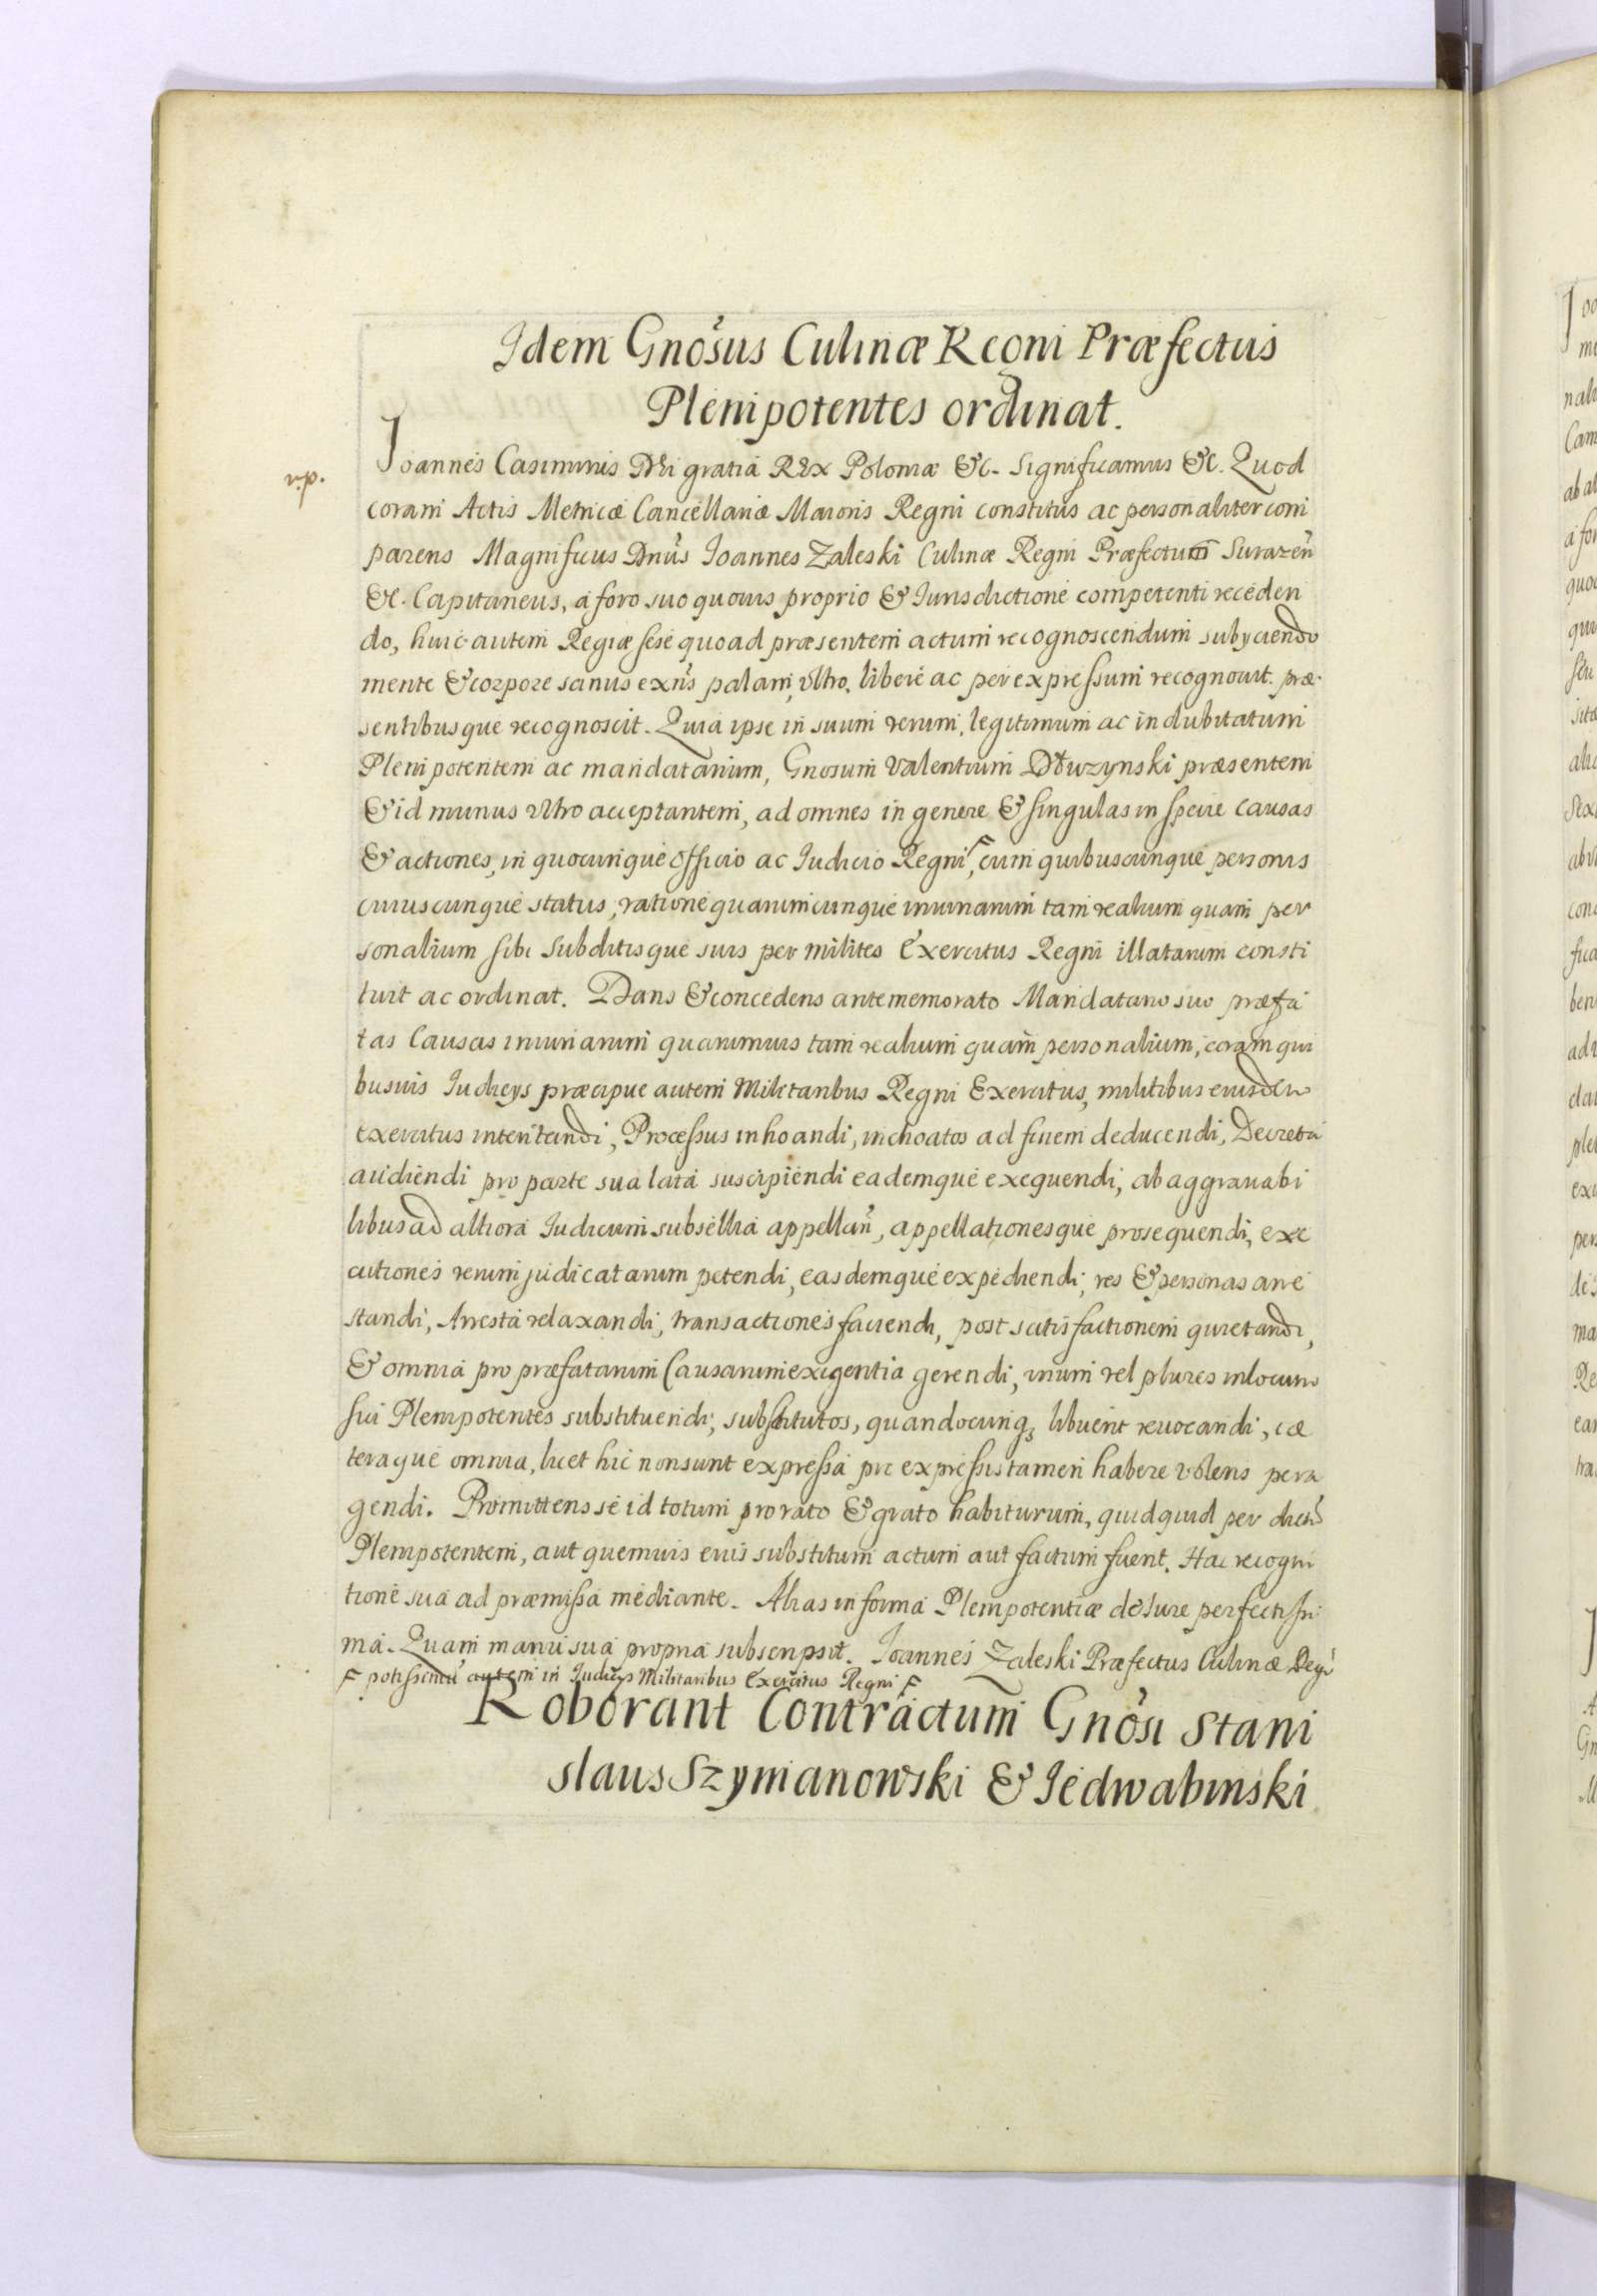 Idem Gnosus Culinæ Regni Præfectus
Plenipotentes ordinat.
Joannes Casimirus DEi gratia REx Poloniæ &c. Significamus &c. Quod
coram Actis Metricæ Cancellariæ Maioris Regni constitus ac personaliter com
parens Magnificus Dnus Joannes Zaleski Culinæ Regni Præfectum Surazen
&c. Capitaneus, a foro suo quovis proprio & Jurisdictione competenti receden
do, huic autem Regiæ sese quoad præsentem actum recognoscendum subyciendo
mente & corpore sanus exns palam, vltro, libere ac per expressum recognovit. præ
sentibusque recognoscit. Quia ipse in suum verum, legitimum ac indubitatum
Plenipotentem ac mandatarium, Gnosum Valentium præsentem
& id munus vltro acceptantem, ad omnes in genere & singulas in specie Causas
& actiones, in quocunque Officio ac Judicio Regni, cum quibuscunque personis
cuiuscunque status, ratione quarumcunque iniuriarum tam realium quam per
sonalium sibi Subditisque suis per milites Exercitus Regni illatarum consti
tuit ac ordinat. Dans & concedens antememorato Mandatario suo præfa
tas Causas iniuriarum quarumvis tam realium quam personalium, coram qui
busvis Judicys præcipue autem Militaribus Regni Exercitus, militibus eiusdem
exercitus intentandi, Processus inhoandi, inchoatos ad finem deducendi, Decreta
audiendi pro parte sua lata suscipiendi eademque exequendi, ab aggravabi
libus ad altiora Judicium subsellia appellan, appellationesque prosequendi, exe
cutiones rerum judicatarum petendi, easdemque expediendi, res & personas arre
standi, Arresta relaxandi, transactiones faciendi, post satisfactionem quietandi,
& omnia pro præfatarum Causarum exigentia gerendi, unum vel plures in locum
sui Plenipotentes substituendi, substitutos, quandocunq3 libuerit revocandi, cæ
teraque omnia, licet hic non sunt expressa pro expressis tamen habere volens pera
gendi. Promittens se id totum pro rato & grato habiturum, quidquid per dictu
Plenipotentem, aut quemvis eius substitum actum aut factum fuerit. Hac recogni
tione sua ad præmissa mediante. Alias in forma Plenipotentiæ de Jure perfectissi
ma. Quam manu sua propria subscripsit. Joannes Zaleski Præfectus Culinæ Regi
F potissimu autem in Judicys Militaribus Exercitus Regni F
Roborant Contractum Gnosi Stani
slaus Szymanowski & Jedwabinski